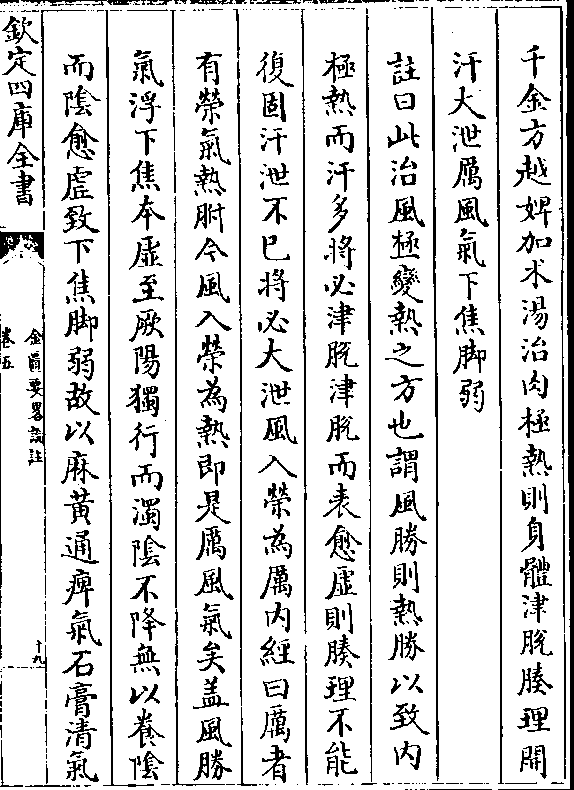 千金方越婢加术湯治肉極熱則身體津脫腠理開
汗大泄厲風氣下焦脚弱
註曰此治風極變熱之方也謂風勝則熱勝以致内
極熱而汗多將必津脫津脫而表愈虛則腠理不能
復固汗泄不已將必大泄風入榮為厲内經曰厲者
有榮氣熱胕今風入榮為熱即是厲風氣矣盖風勝
氣浮下焦本虛至厥陽獨行而濁陰不降無以養陰
而陰愈虛致下焦脚弱故以麻黄通痺氣石膏清氣
欽定四庫全書
金匱要畧論註
卷五
十九